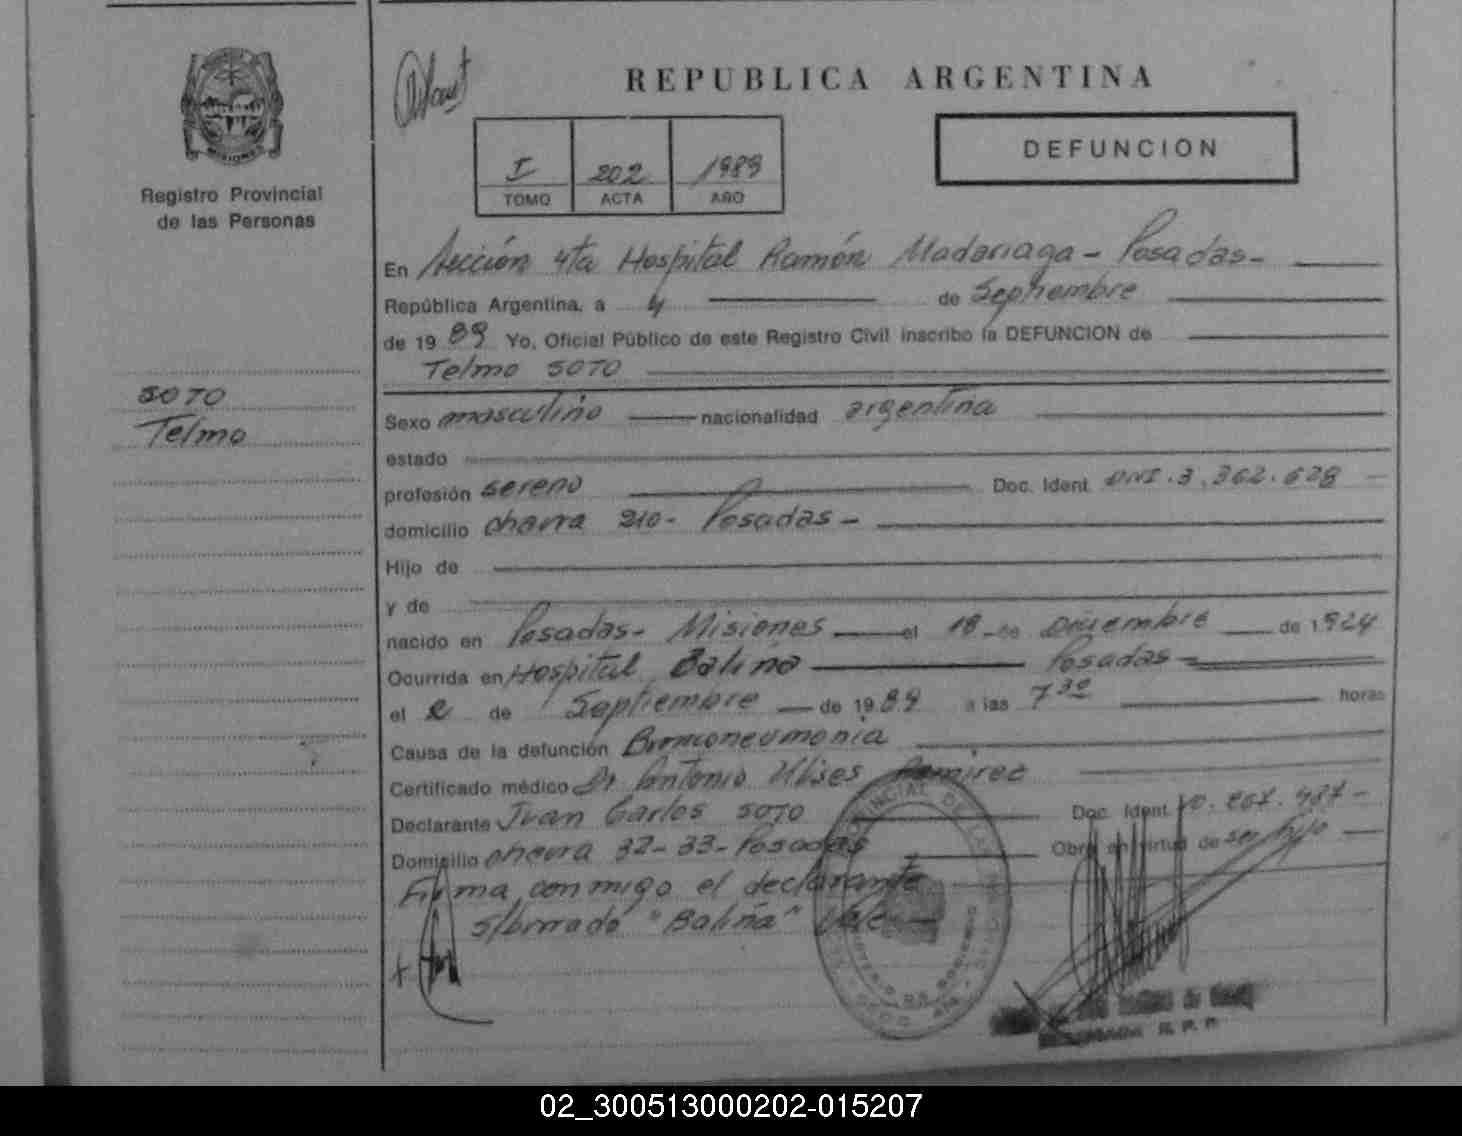 REPUBLICA ARGENTINA
MISIONES
Registro Provincial
de las Personas
I 202 1989
TOMO ACTA AÑO
DEFUNCION
En Sección 4ta Hospital Ramón Madariaga - Posadas -
República Argentina, a 4 de Septiembre
de 1989 Yo, Oficial Público de este Registro Civil inscribo la DEFUNCION de
Telmo SOTO
SOTO
Telmo
Sexo masculino nacionalidad argentina
estado
profesión sereno Doc. Ident. DNI. 3.362.628 -
domicilio chacra 210 - Posadas -
Hijo de
y de
nacido en Posadas - Misiones el 18 de Diciembre de 1924
Ocurrida en Hospital Baliña Posadas
el 2 de Septiembre de 1989 a las 7 30 horas
Causa de la defunción Bronconeumonia
Certificado médico Dr Antonio Ulises Ramirez
Declarante Juan Carlos SOTO Doc. Ident. 10.267.487 -
Domicilio chacra 32-33 - Posadas Obra en virtud de ser hijo
Firma conmigo el declarante
S/borrado "Baliña" Vale
02_300513000202-015207